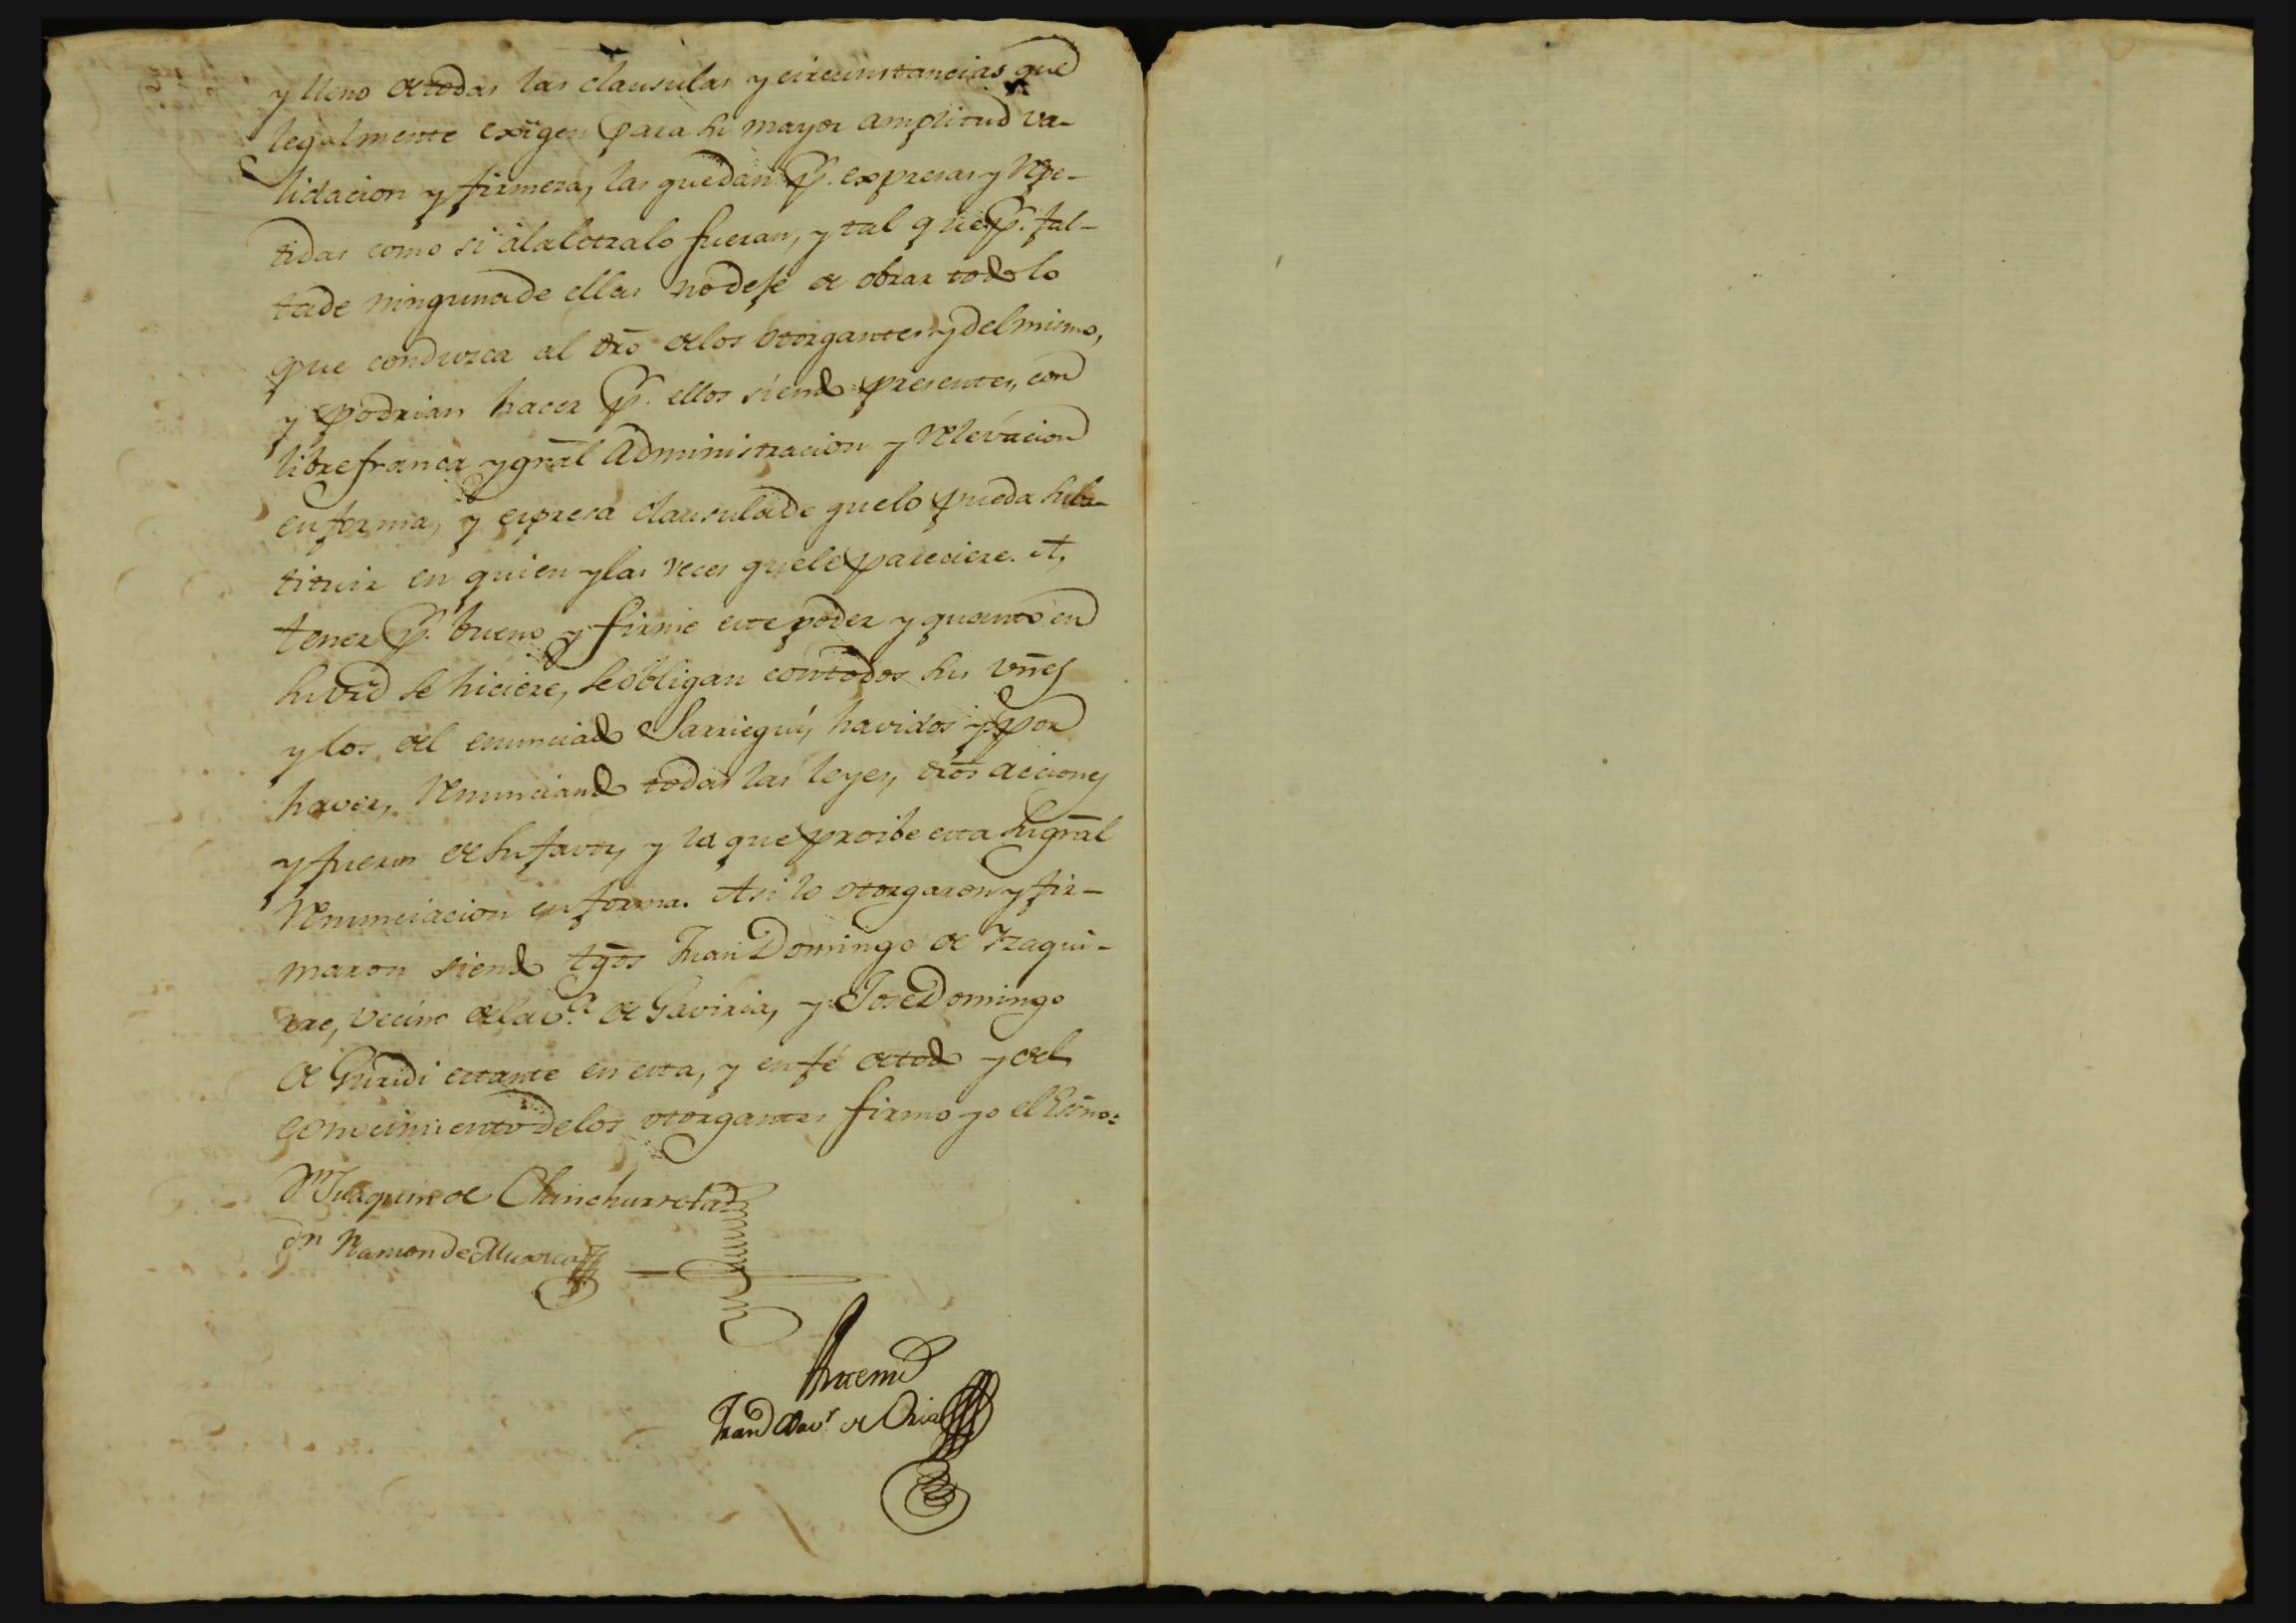 y lleno de todas las clausulas y circunstancias que
legalmente exigen para su mayor amplitud va-
lidacion y firmeza, las quedan p.r expresas y repe-
tidas como si àlaletralo fueran, y tal que p.r fal-
tade ningunade ellas nodeje de obrar todo lo
que conduzca al dr̃o delos otorgantes y del mismo,
y podrian hacer p.r ellos siendo presentes, con
libre franca y gnr̃al Administracion y relevacion
en forma, y expresa clausulade quelo pueda subs-
tituir en quien y las veces quele pareciere. A,
tener p.r bueno y firme este poder y quanto en
su vrd se hiciere, se obligan contodos sus vñes
y los del enunciado Sarriegui, havidos y por
haver, renunciando todas las leyes, dr̃os acciones
y fueros de su favor, y la que proibe esta su gnr̃al
renunciacion en forma. Asi lo otorgaron y fir-
maron siendo tg̃os Juan Domingo de Yzagui-
rre, vecino dela v.a de Gaviria, y Jose Domingo
de Guridi estante en esta, y en fé detodo y del
conocimiento delos otorgantes firmo yo el Esño:
Dn Juaquin de Chinchurreta
Dn Ramon de Muxica
Antemi
Juan Bav.r de Oria